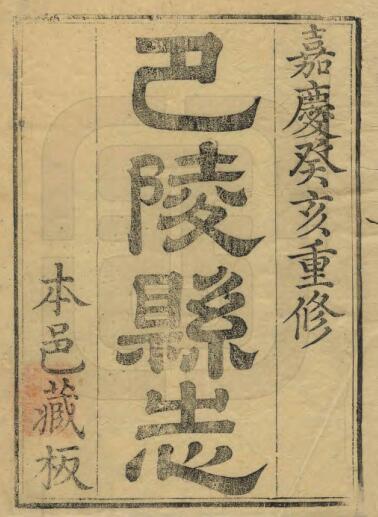 嘉慶癸亥重修
巴陵縣志
本邑藏板